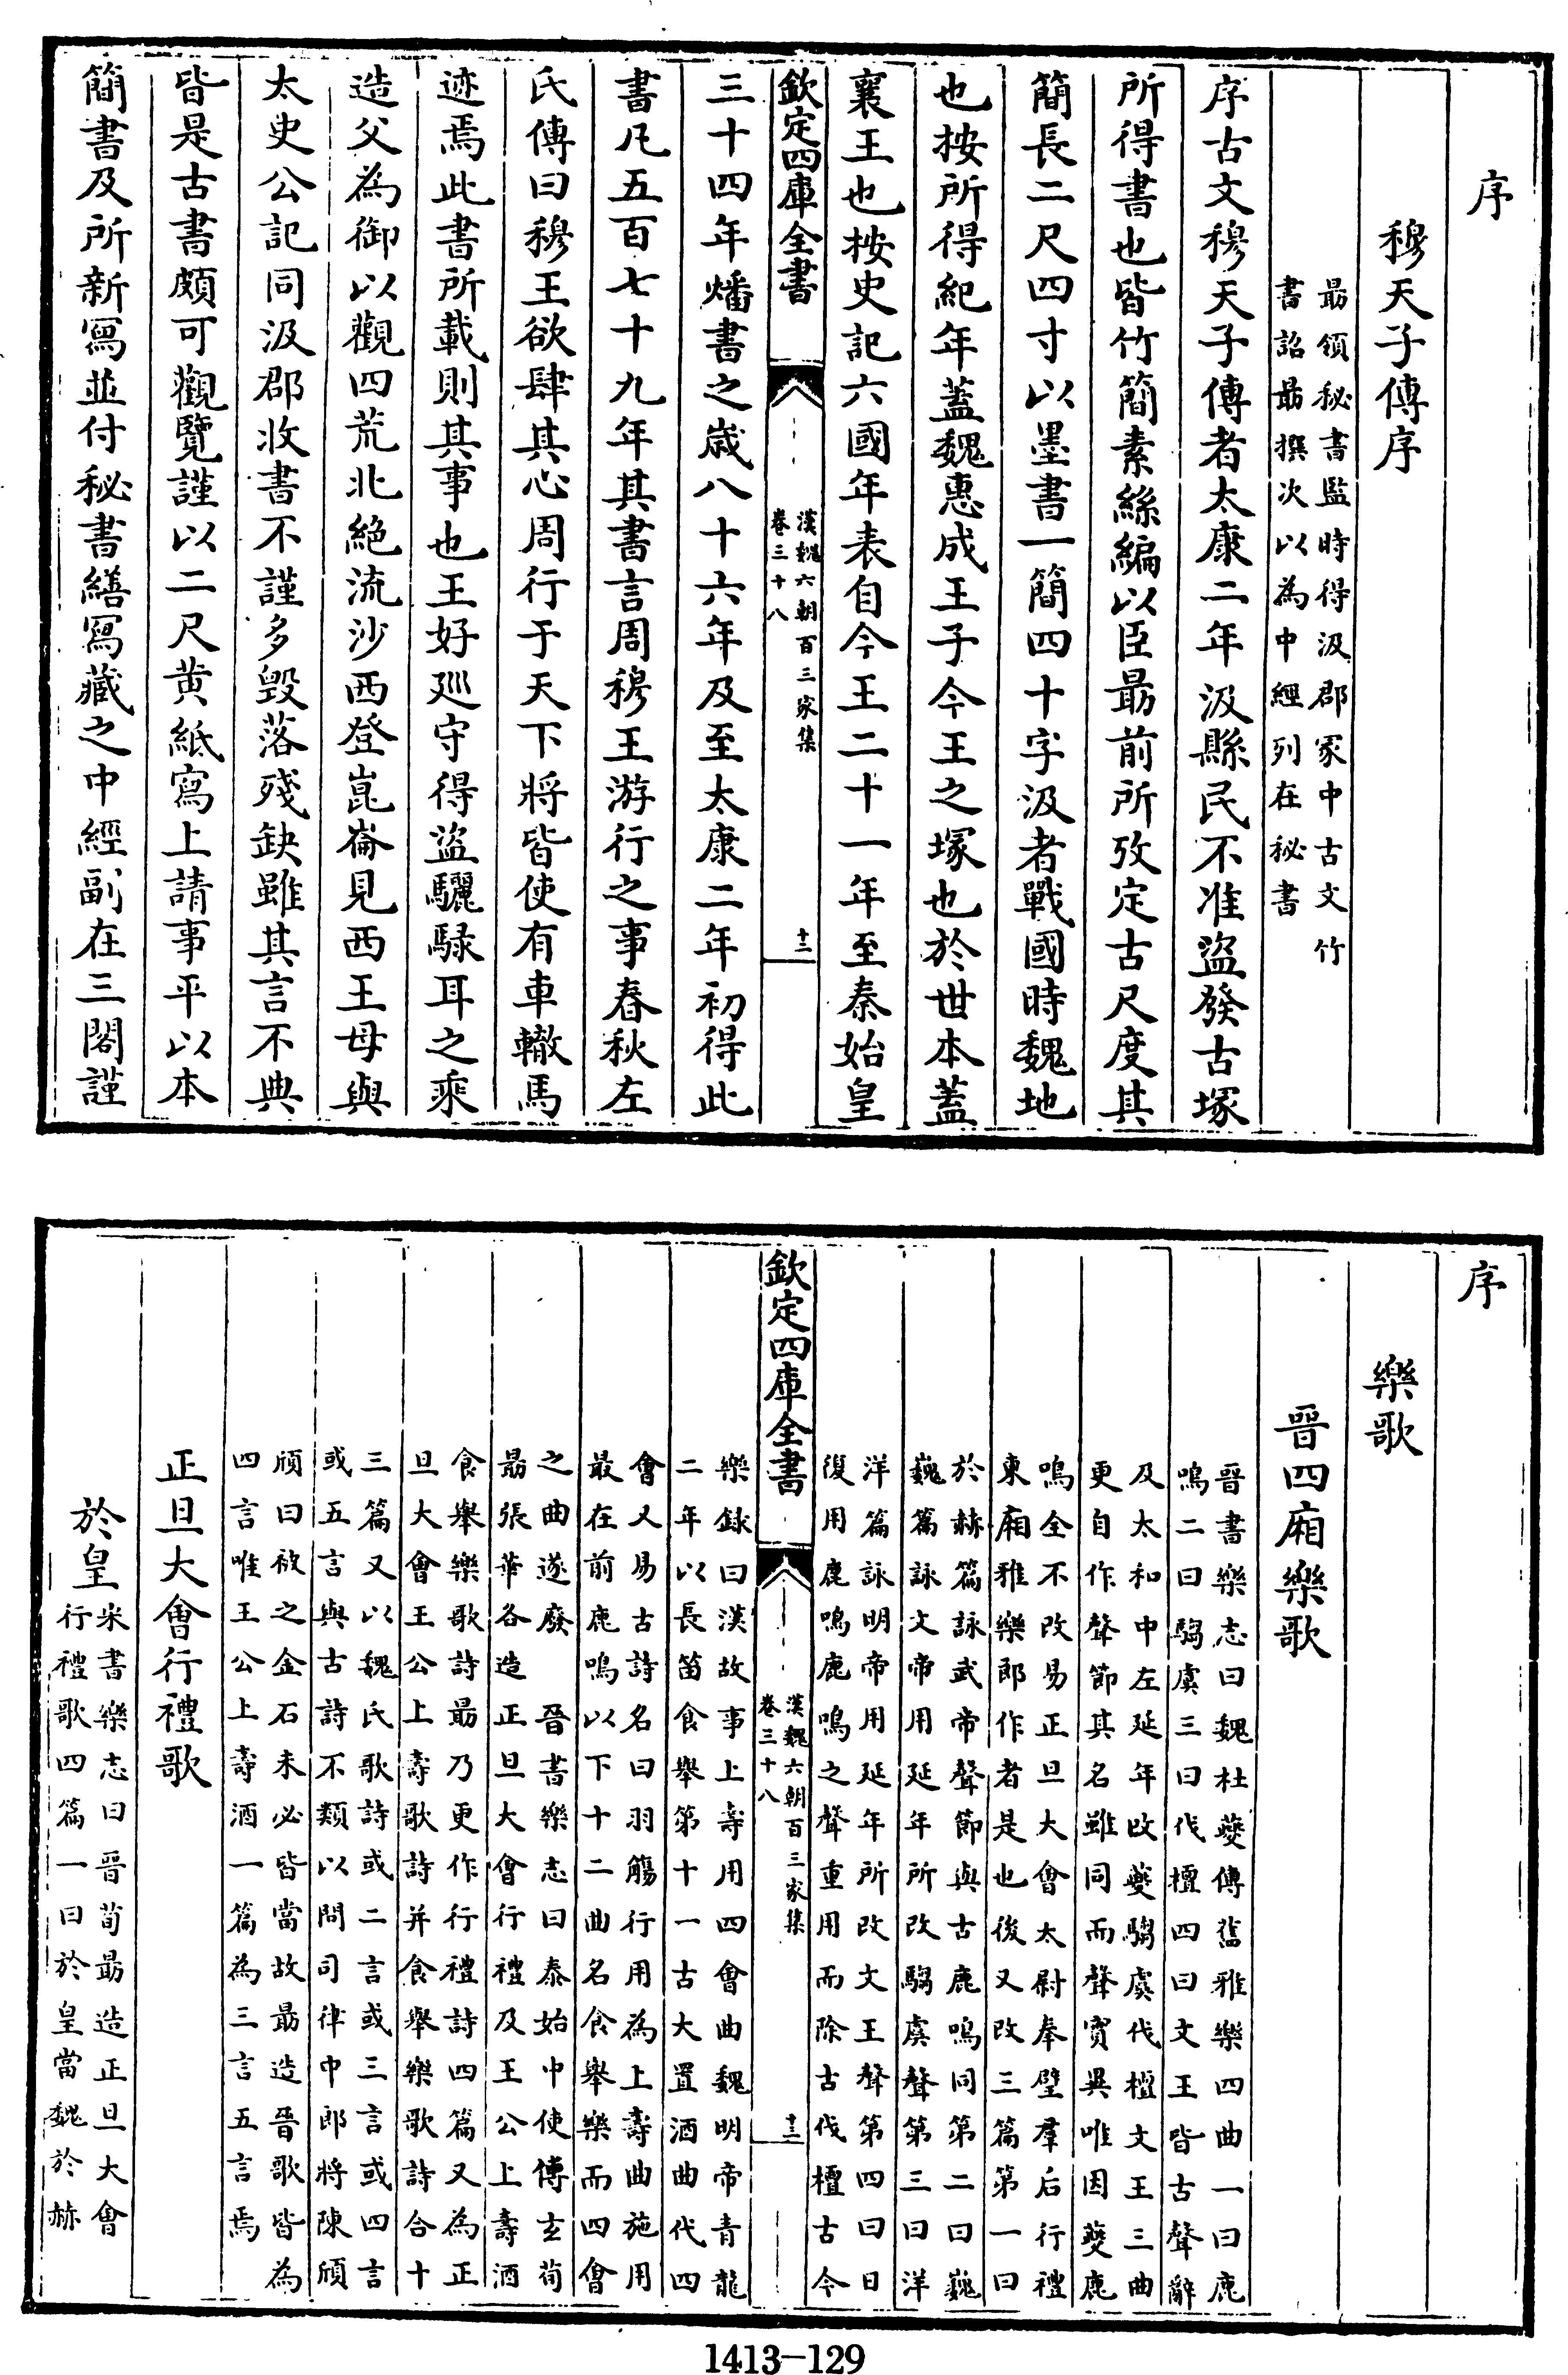 序
穆天子傳序
勗領秘書監時得汲郡冢中古文竹
書詔勗撰次以為中經列在秘書
序古文穆天子傳者太康二年汲縣民不准盜發古塚
所得書也皆竹簡素絲編以臣勗前所攷定古尺度其
簡長二尺四寸以墨書一簡四十字汲者戰國時魏地
也按所得紀年蓋魏惠成王子今王之塚也於世本蓋
襄王也按史記六國年表自今王二十一年至秦始皇
欽定四庫全書
漢魏六朝百三家集
卷三十八
十二
三十四年燔書之歲八十六年及至太康二年初得此
書凡五百七十九年其書言周穆王游行之事春秋左
氏傳曰穆王欲肆其心周行于天下將皆使有車轍馬
迹焉此書所載則其事也王好廵守得盜驪騄耳之乘
造父為御以觀四荒北絕流沙西登崑崙見西王母與
太史公記同汲郡收書不謹多毀落殘缺雖其言不典
皆是古書頗可觀覽謹以二尺黃紙寫上請事平以本
簡書及所新寫並付秘書繕寫藏之中經副在三閣謹
序
樂歌
晉四廂樂歌
晉書樂志曰魏杜夔傳舊雅樂四曲一曰鹿
鳴二曰騶虞三曰伐檀四曰文王皆古聲辭
及太和中左延年改夔騶虞伐檀文王三曲
更自作聲節其名雖同而聲實異唯因夔鹿
鳴全不改易正旦大會太尉奉璧羣后行禮
東廂雅樂郎作者是也後又改三篇第一曰
於赫篇詠武帝聲節與古鹿鳴同第二曰巍
巍篇詠文帝用延年所改騶虞聲第三曰洋
洋篇詠明帝用延年所改文王聲第四曰日
復用鹿鳴鹿鳴之聲重用而除古伐檀古今
欽定四庫全書
漢魏六朝百三家集
卷三十八
十三
樂錄曰漢故事上壽用四會曲魏明帝青龍
二年以長笛食舉第十一古大置酒曲代四
會又易古詩名曰羽觴行用為上壽曲施用
最在前鹿鳴以下十二曲名食舉樂而四會
之曲遂廢　晉書樂志曰泰始中使傅玄荀
勗張華各造正旦大會行禮及王公上壽酒
食舉樂歌詩勗乃更作行禮詩四篇又為正
旦大會王公上壽歌詩并食舉樂歌詩合十
三篇又以魏氏歌詩或二言或三言或四言
或五言與古詩不類以問司律中郎將陳頎
頎曰被之金石未必皆當故勗造晉歌皆為
四言唯王公上壽酒一篇為三言五言焉
正旦大會行禮歌
於皇
宋書樂志曰晉荀勗造正旦大會
行禮歌四篇一曰於皇當魏於赫
1413—129